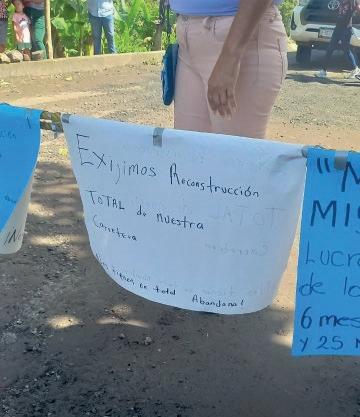 Exijimos Reconstrucción
TOTAL de nuestra
Carretera
Nos tienen en total Abandono!
"N
MIS
Lucra
de lo
6 mes
y 25 M